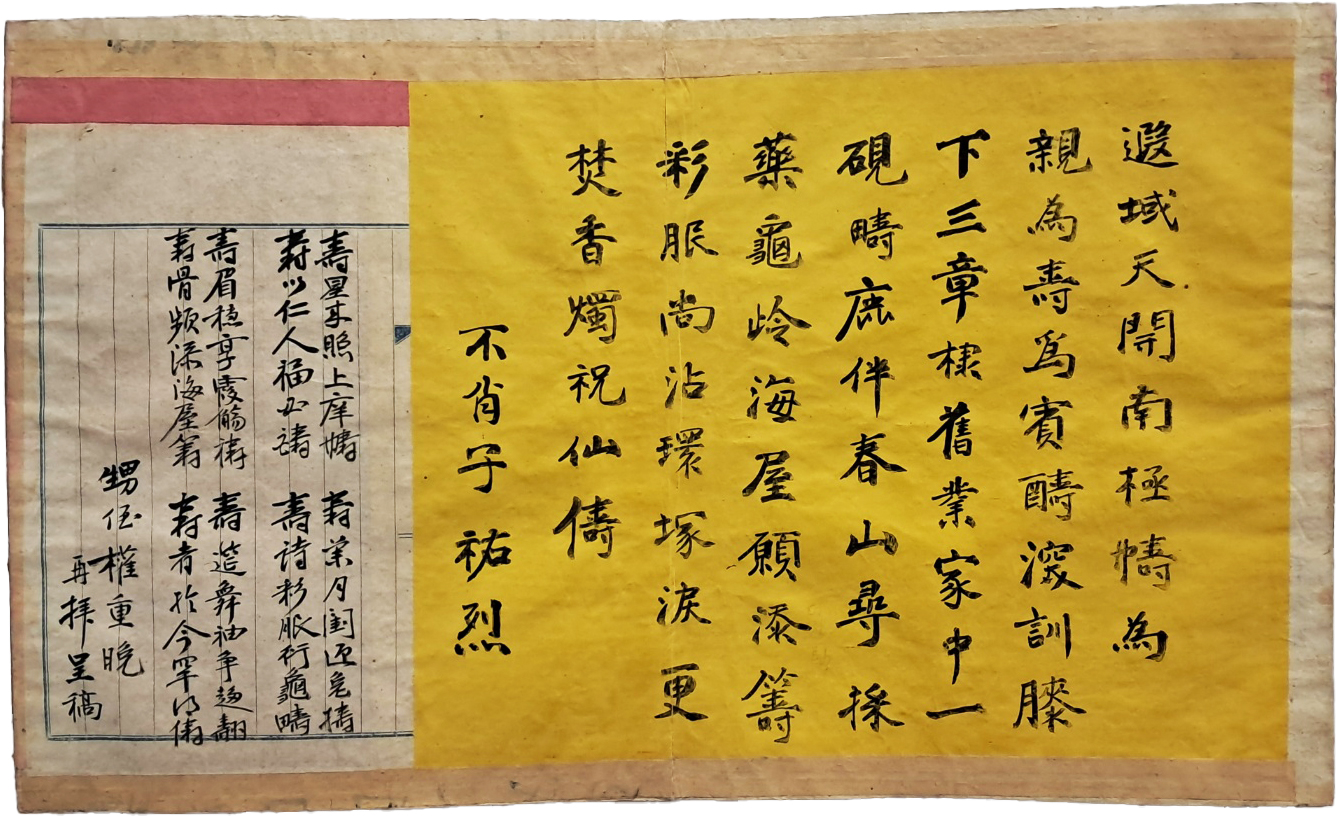 遐域天開南極幬為
親為壽爲賓醻深訓膝
下三章棣舊業家中一
硯疇鹿伴春山尋採
藥龜岭海屋願添籌
彩服尚沾環塚淚更
焚香燭祝仙儔
不肖子祐烈
壽星來照上庠幬 壽月迎老
壽以仁人福必譸 壽詩彩服衍龜疇
壽眉穩享霞觴禱 壽筵舞袖爭趨翿
壽骨頻添海屋籌 壽者於今罕得儔
甥侄權重晚
再拜呈稿